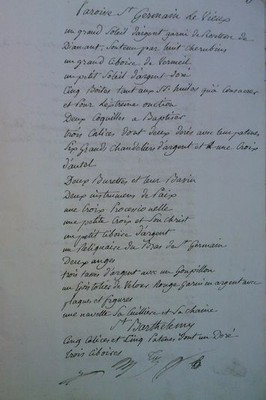 Paroise St Germain de Vieux
un grand Soleil d'argent garni de Roses de
Diamant, Soutenu par huit cherubins
un grand Ciboire de Vermeil
un petit Soleil d'argent doré
Cinq Boites tant aux Sts huiles qu'a consacrer
et pour L'extreme onction
Deux Coquilles a Baptiser
trois Calices dont deux dorés avec leur patenes
Six Grands Chandeliers d'argent et une Croix
d'autel
Deux Burettes et leur Bassin
Deux instrumens de Paix
une Croix Processionelle
une petite Croix et Son Christ
un petit Ciboire d'argent
un Reliquaire du Bras de St Germain
Deux anges
trois d'argent avec un Goupillon
un Epistolier de Velours Rouge Garni en argent avec
plaque et figures
une navette sa Cuillier et sa Chaine
St Barthelemy
Cinq Calices et Cinq Patenes dont un Doré
trois Ciboires